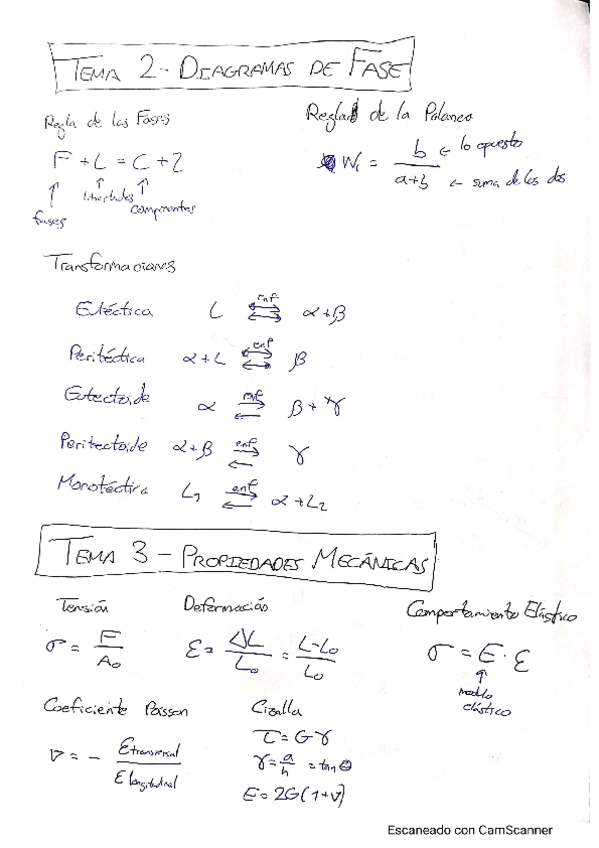 TEMA 2 - DIAGRAMAS DE FASE
Regla de las Fases
F + L = C + 2
fases
libertades
componentes
Regla de la Palanca
W₁ = b / a+b
← lo opuesto
← suma de los dos
Transformaciones
Eutéctica L ⇄ (enf) α+β
Peritéctica α+L ⇄ (enf) β
Eutectoide α ⇄ (enf) β+γ
Peritectoide α+β ⇄ (enf) γ
Monotéctica L₁ ⇄ (enf) α+L₂
TEMA 3 - PROPIEDADES MECÁNICAS
Tensión
σ = F / A₀
Deformación
ε = ΔL / L₀ = L-L₀ / L₀
Comportamiento Elástico
σ = E · ε
modulo
elástico
Coeficiente Poisson
ν = - ε transversal / ε longitudinal
Cizalla
τ = G γ
γ = a / h = tan θ
E = 2G(1+ν)
Escaneado con CamScanner